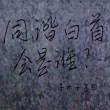 同谐白首
会是谁?